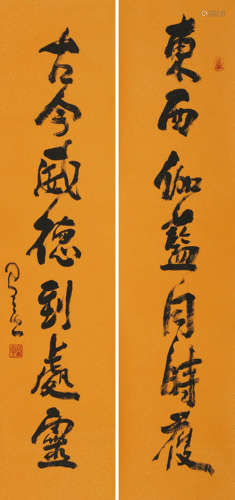 東西伽藍月時覆
古今威德到處靈